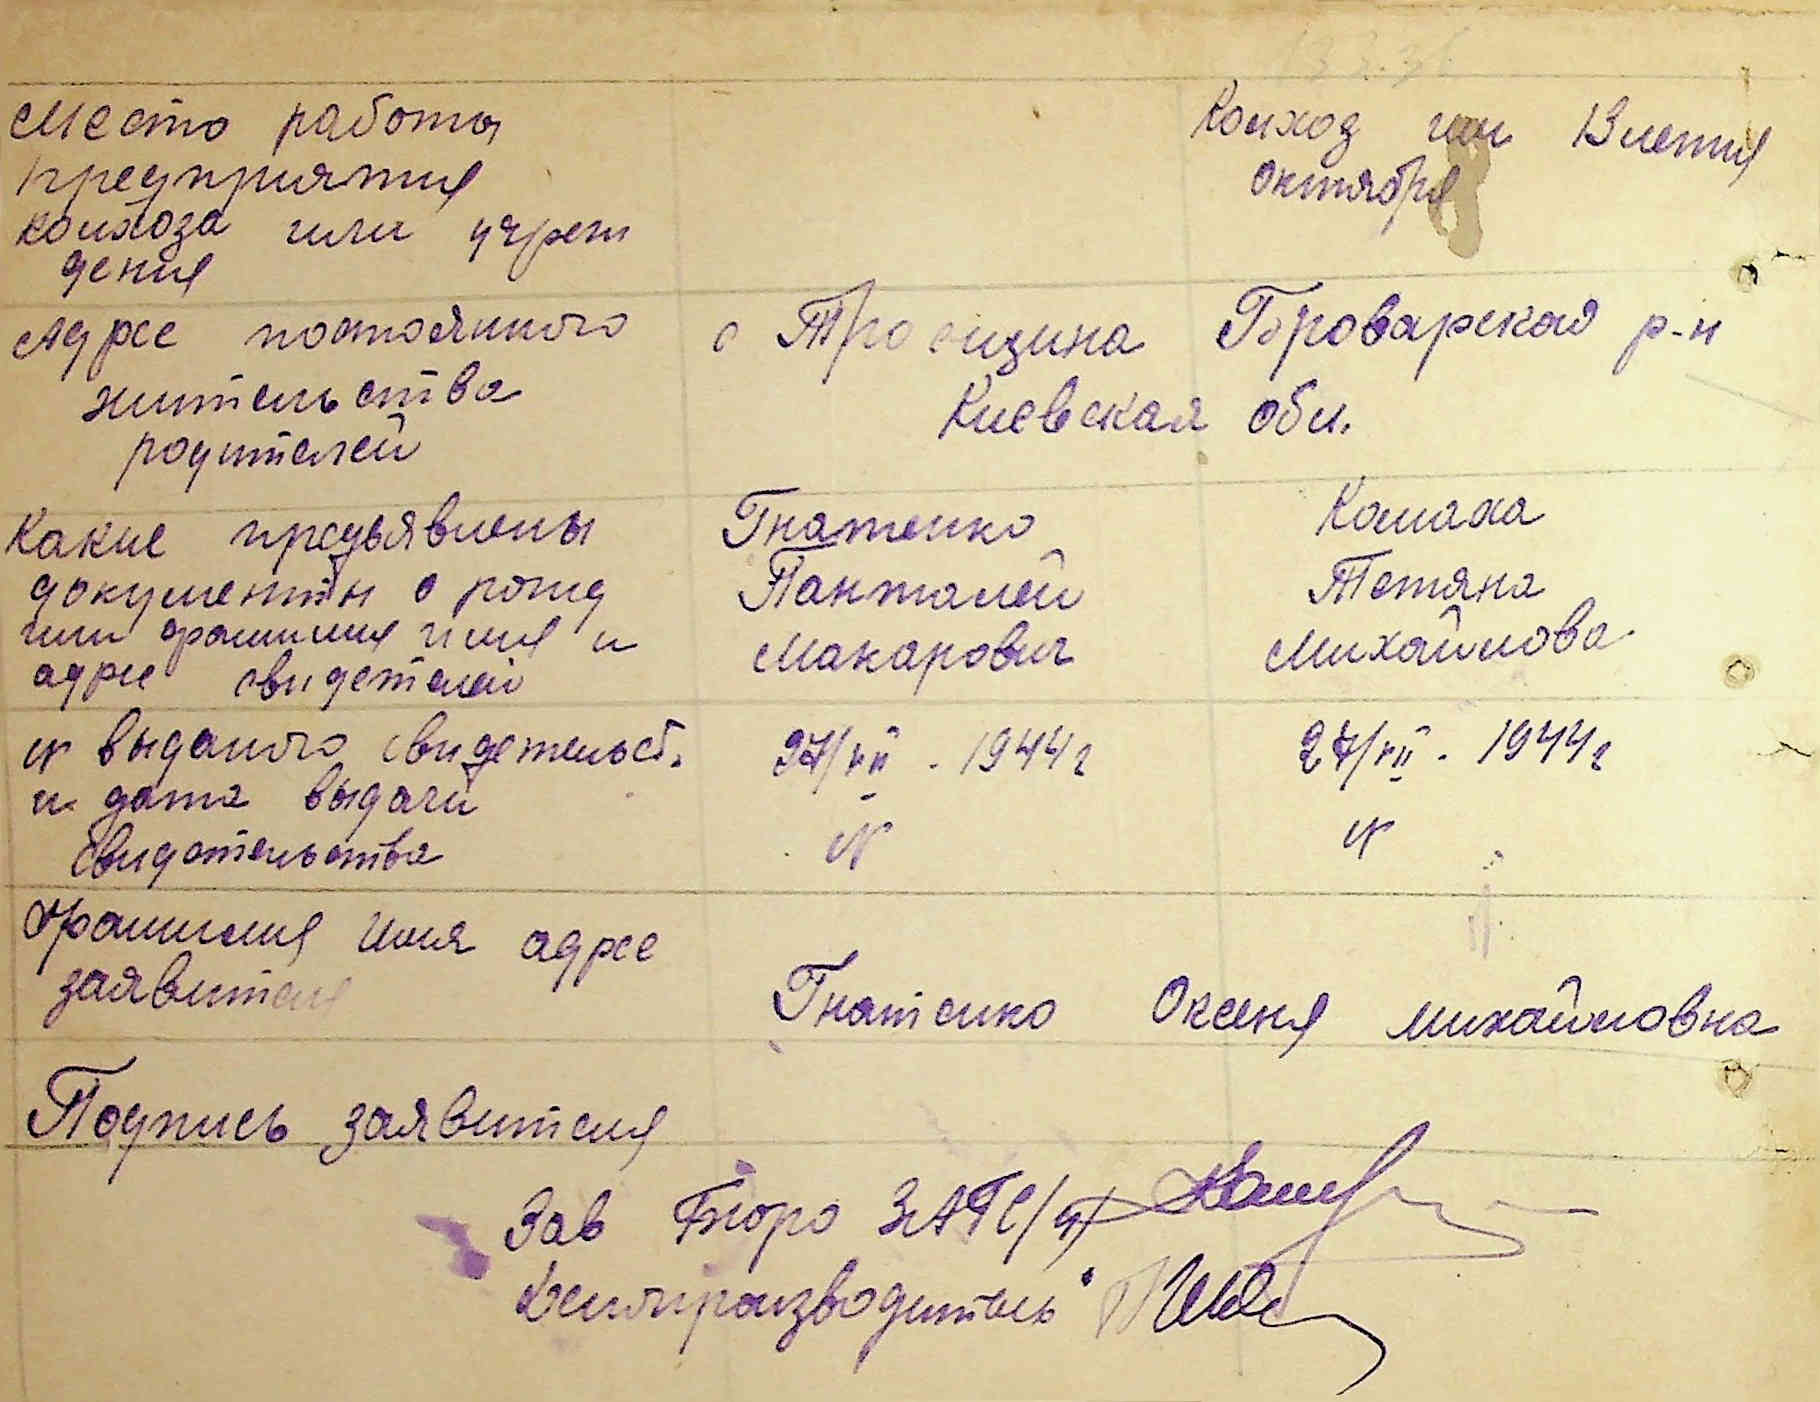 Место работы
предприятия
колхоза или учреж
дения
Колхоз им 13 летия
октября
Адрес постоянного
жительства
родителей
с Троещина Броварской р-н
Киевская обл.
Какие предъявлены
документы о рожд
или фамилия имя и
адрес свидетелей
Гнатенко
Панталей
Макарович
Комаха
Тетяна
Михайлова
№ выданого свидетельст.
и дата выдачи
свидетельства
27/VII - 1944 г
№
27/VII - 1944 г
№
Фамилия имя адрес
заявителя
Гнатенко Оксеня Михайловна
Подпись заявителя
Зав Бюро ЗАГС
Делопроизводитель